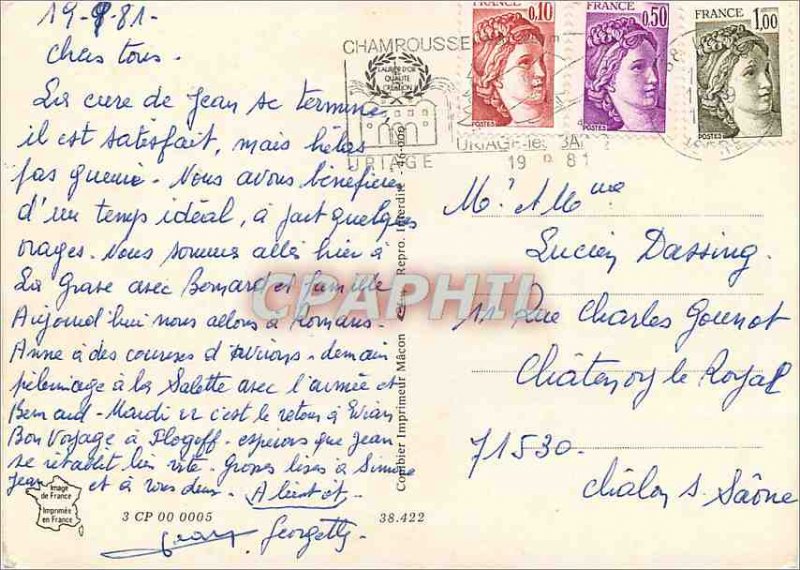 19-9-81-
Chers tous.
La cure de Jean se termine,
il est satisfait, mais hélas
pas guerie. Nous avons bénéficier
d'un temps idéal, à part quelques
orages. Nous sommes allés hier à
La Grave avec Bernard et famille
Aujourd'hui nous allons à Romans.
Anne à des courses d'avirons. demain
pélerinage à la Salette avec l'armée et
Bernard. Mardi 22 c'est le retour à Evian
Bon Voyage à Plogoff. espérons que Jean
se rétablit très vite. Grosses bises à Simone
Jean et à vous deux. A bientôt.
Jean Georgette
Image
de France
Imprimée
en France
3 CP 00 0005
38.422
Combier Imprimeur Mâcon
Repro. Interdite - 46-000
CHAMROUSSE
LAURIER D'OR
QUALITE
CREATION
URIAGE
URIAGE-les-BA
19 9 81
FRANCE
0,10
POSTES
FRANCE
0,50
POSTES
FRANCE
1,00
POSTES
Mr et Mme
Lucien Dassing.
11 Rue Charles Gounot
Châtenoy le Royal
71530.
Châlon s. Saône
CPAPHIL.com